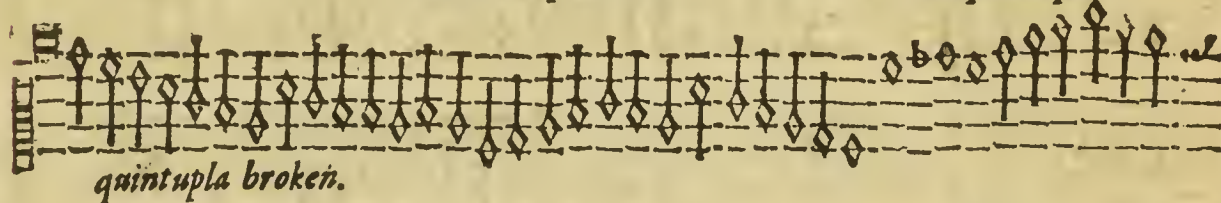 quintupla broken.